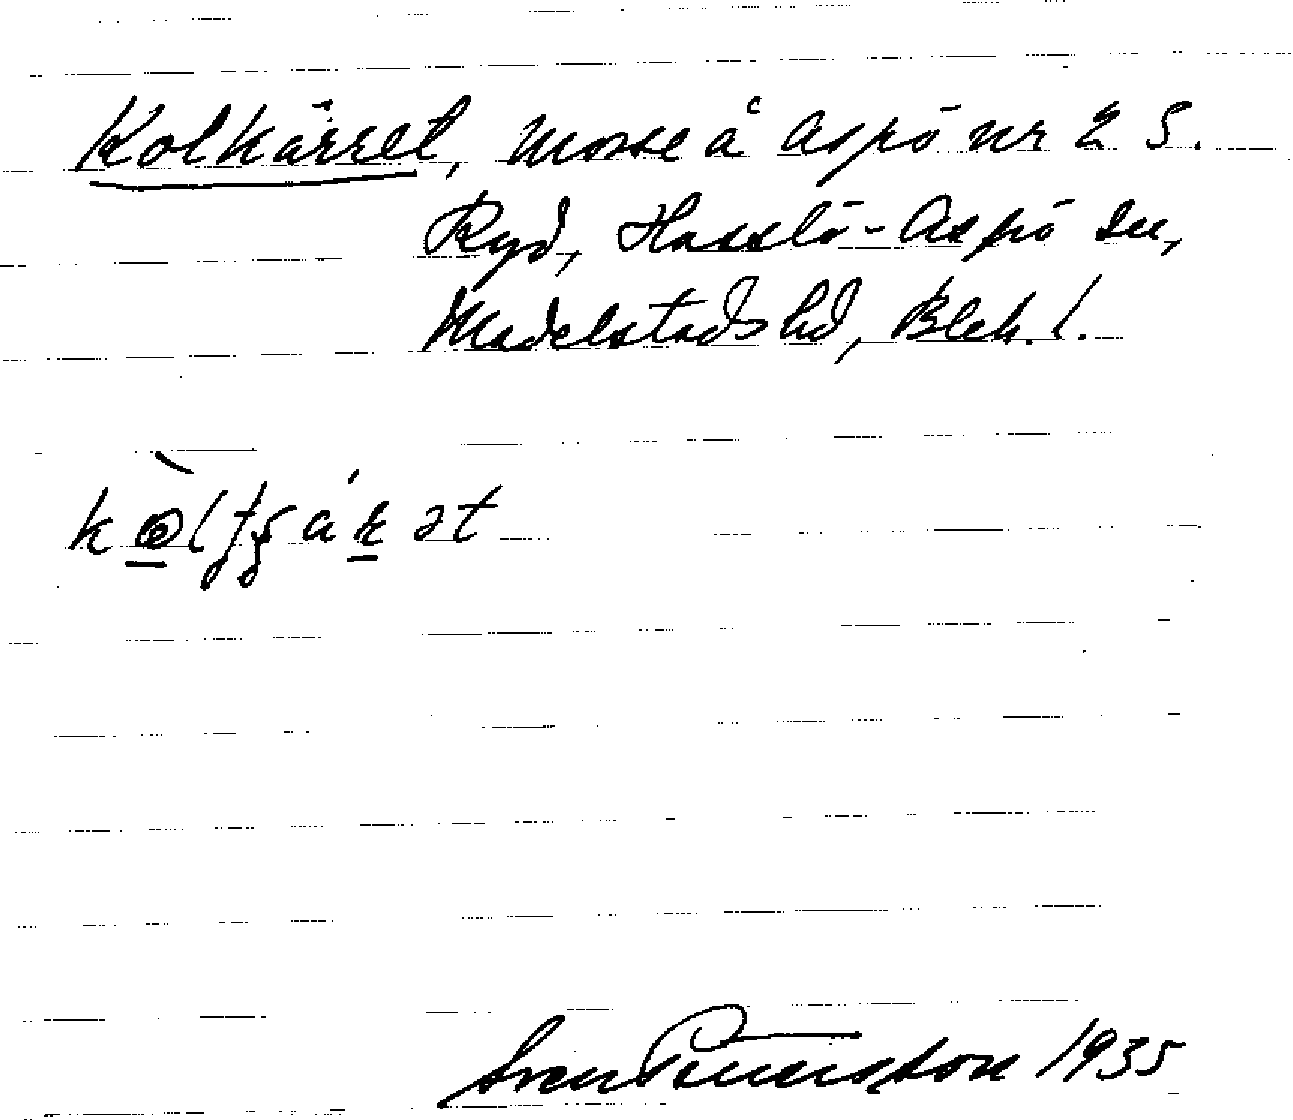 Kolkärret, mosse å Aspö nr 2 S.
Ryd, Hasslö-Aspö sn,
Medelstads hd, Blek. l.
Sven 1935